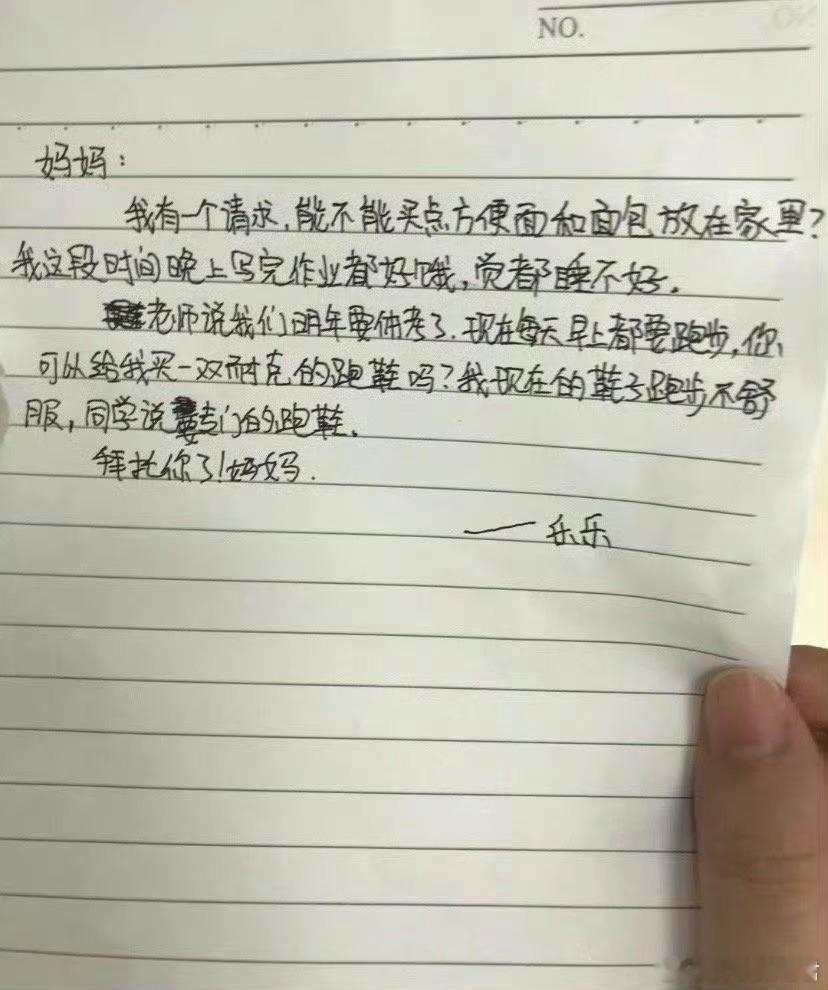 NO.
妈妈：
我有一个请求，能不能买点方便面和面包放在家里？
我这段时间晚上写完作业都好饿，觉都睡不好。
老师说我们明年要体考了．现在每天早上都要跑步，你
可以给我买一双耐克的跑鞋吗？我现在的鞋子跑步不舒
服，同学说要专门的跑鞋．
拜托你了！妈妈．
——乐乐